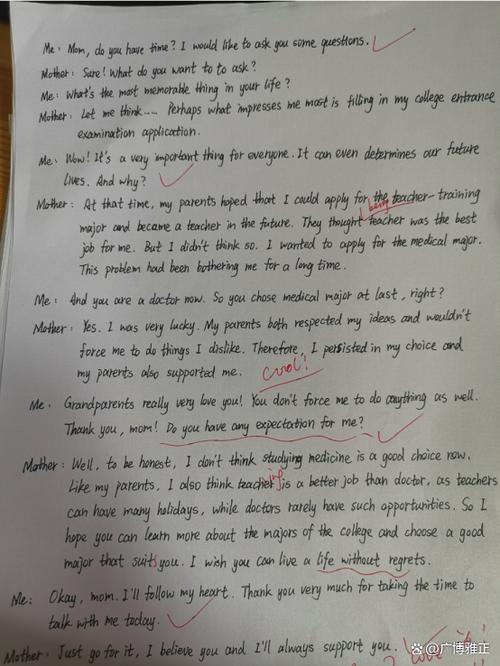 Me: Mom, do you have time? I would like to ask you some questions.
Mother: Sure! What do you want to to ask?
Me: What's the most memorable thing in your life?
Mother: Let me think.... Perhaps what impresses me most is filling in my college entrance
examination application.
Me: Wow! It's a very important thing for everyone. It can even determines our future
lives. And why?
Mother: At that time, my parents hoped that I could apply for the teacher-training
major and became a teacher in the future. They thought being teacher was the best
job for me. But I didn't think so. I wanted to apply for the medical major.
This problem had been bothering me for a long time.
Me: And you are a doctor now. So you chose medical major at last, right?
Mother: Yes. I was very lucky. My parents both respected my ideas and wouldn't
force me to do things I dislike. Therefore, I persisted in my choice and
my parents also supported me. Cool!
Me: Grandparents really very love you! You don't force me to do anything as well.
Thank you, mom! Do you have any expectation for me?
Mother: Well, to be honest, I don't think studying medicine is a good choice now.
Like my parents, I also think teaching is a better job than doctor, as teachers
can have many holidays, while doctors rarely have such opportunities. So I
hope you can learn more about the majors of the college and choose a good
major that suits you. I wish you can live a life without regrets.
Me: Okay, mom. I'll follow my heart. Thank you very much for taking the time to
talk with me today.
Mother: Just go for it, I believe you and I'll always support you.
@广博雅正